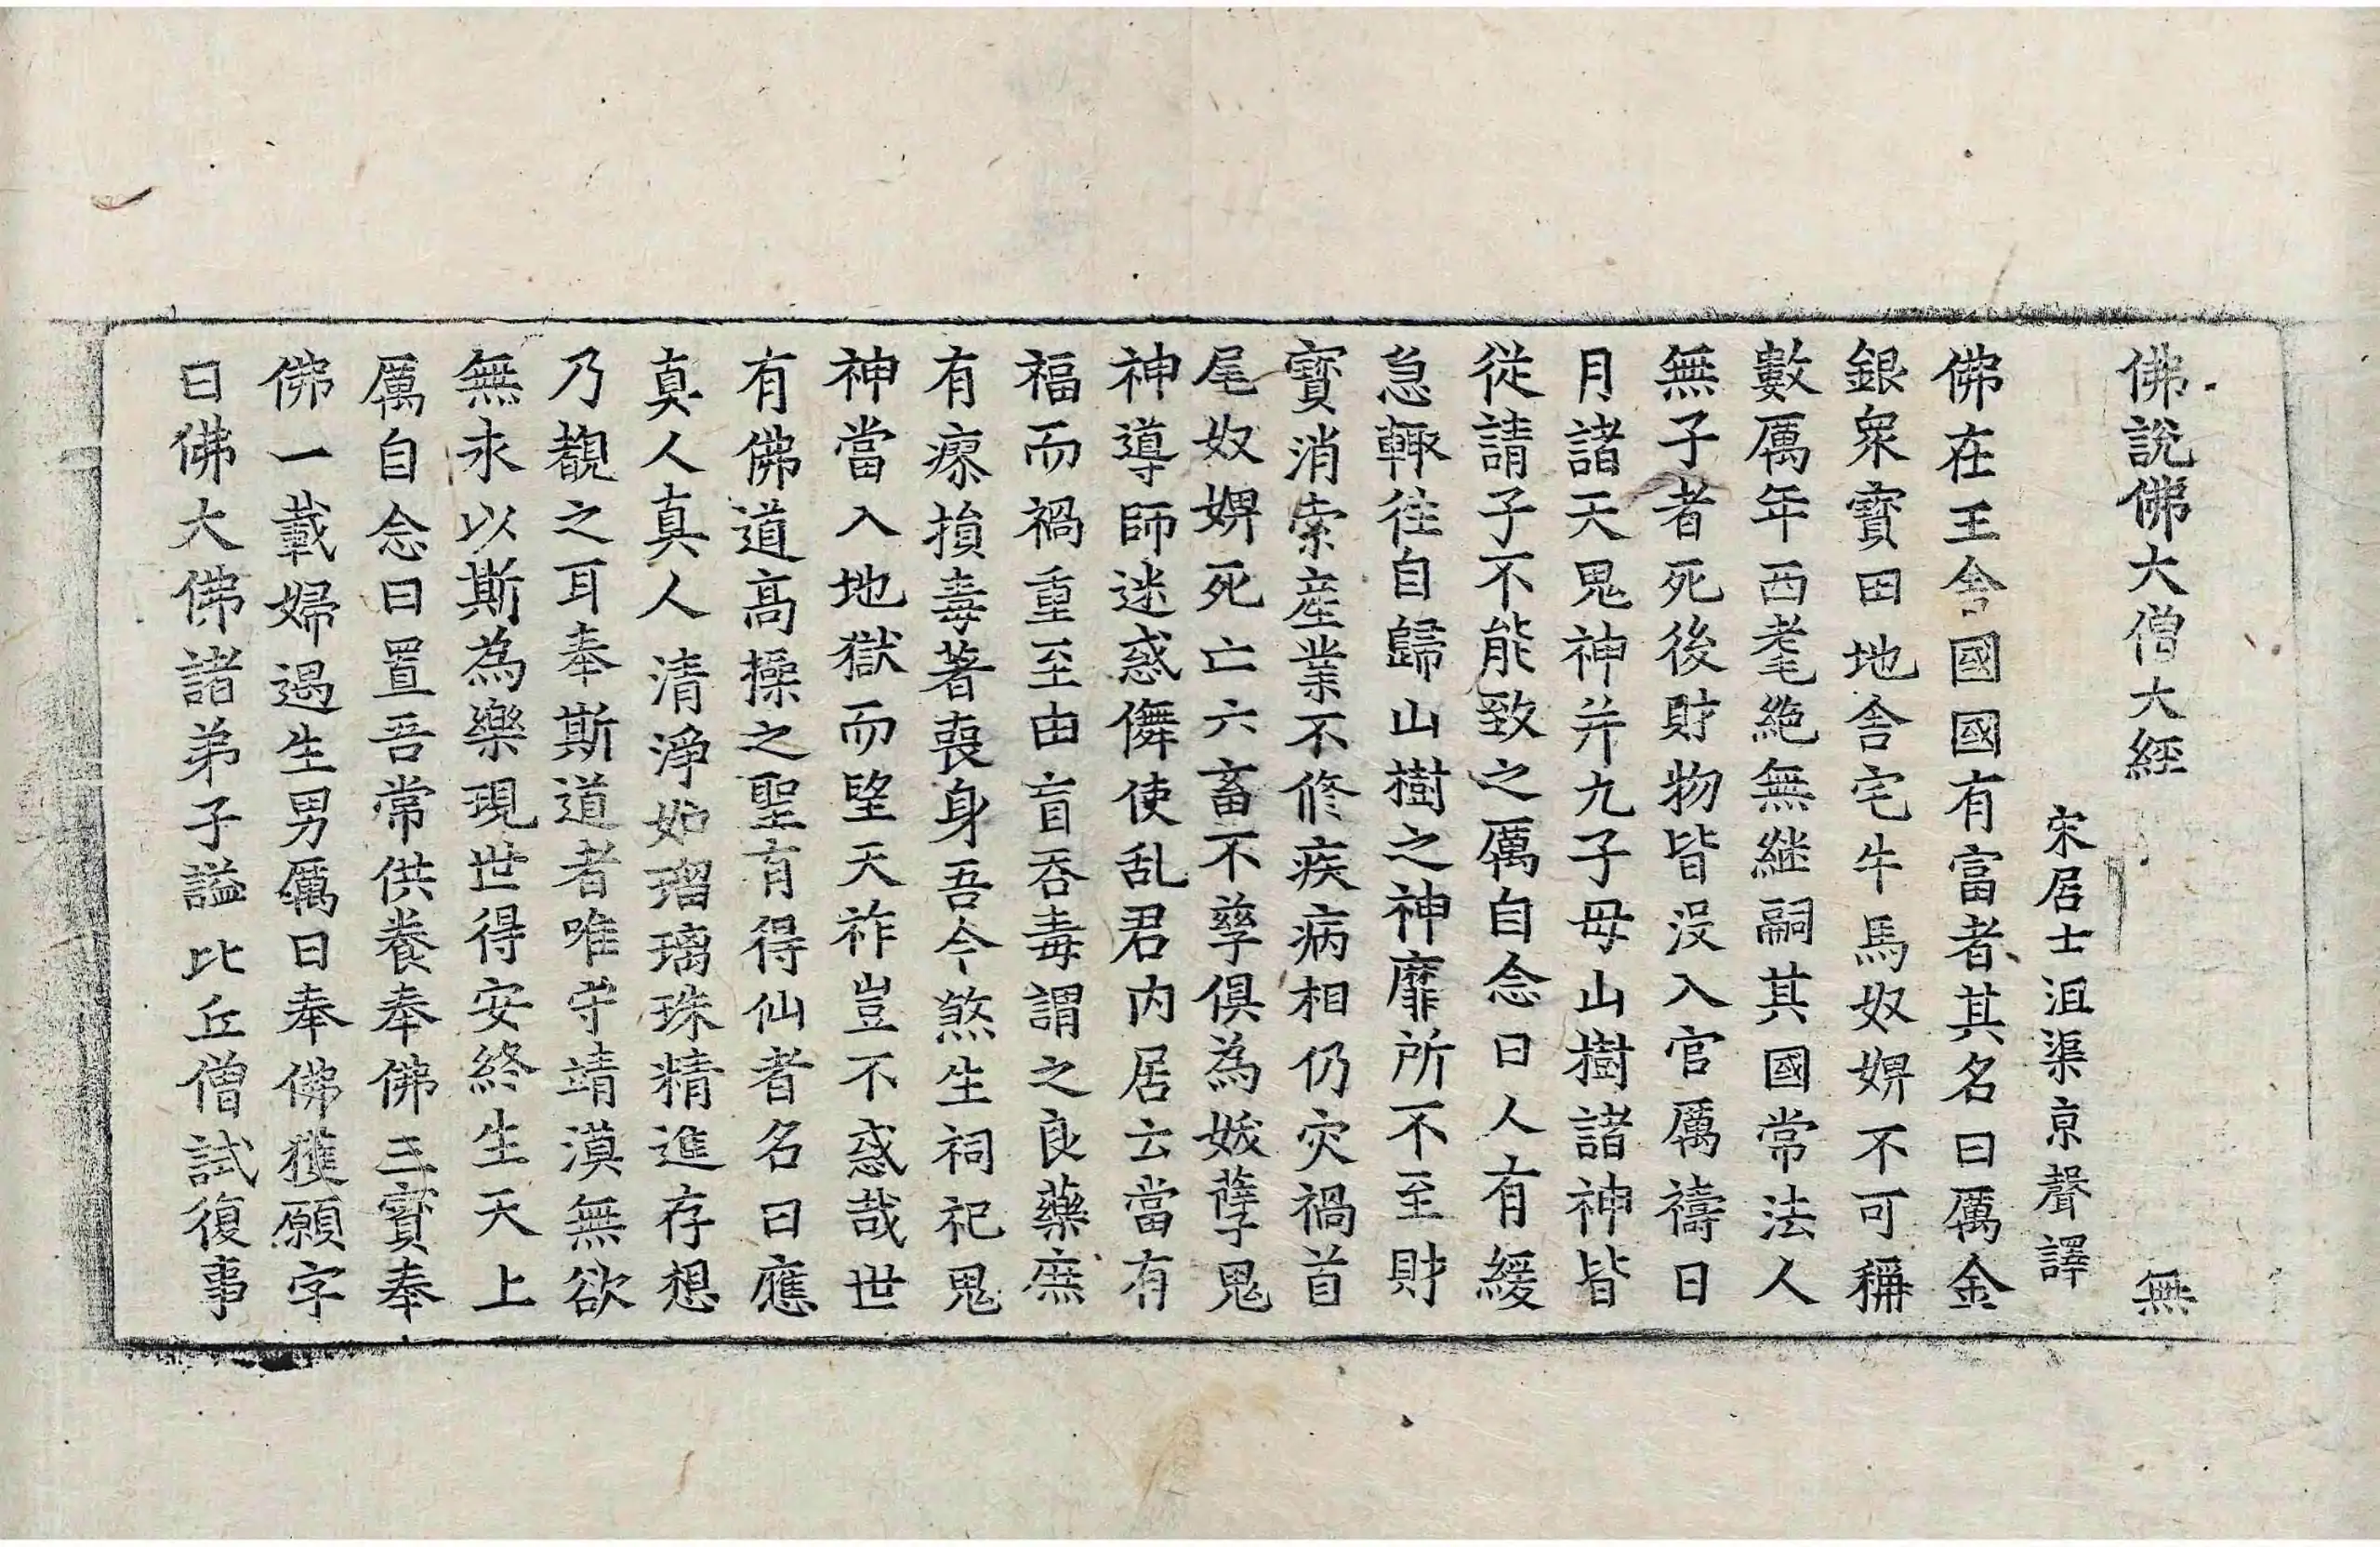 佛說佛大僧大經 無
宋居士沮渠京聲譯
佛在王舍國國有富者其名曰厲金
銀眾寶田地舍宅牛馬奴婢不可稱
數厲年西耄絶無継嗣其國常法人
無子者死後財物皆沒入官厲禱日
月諸天鬼神并九子母山樹諸神皆
從請子不能致之厲自念曰人有緩
急輙往自歸山樹之神靡所不至財
寶消索産業不修疾病相仍灾禍首
尾奴婢死亡六畜不孳俱為妭孽鬼
神導師迷惑儛使乱君内居云當有
福而禍重至由盲吞毒謂之良藥庶
有瘳損毒著喪身吾今煞生祠祀鬼
神當入地獄而望天祚豈不惑哉世
有佛道高操之聖有得仙者名曰應
真人真人清淨如瑠璃珠精進存想
乃覩之耳奉斯道者唯守靖漠無欲
無求以斯為樂現世得安終生天上
厲自念曰置吾常供養奉佛三寶奉
佛一載婦遇生男厲曰奉佛獲願字
曰佛大佛諸弟子謚比丘僧試復事